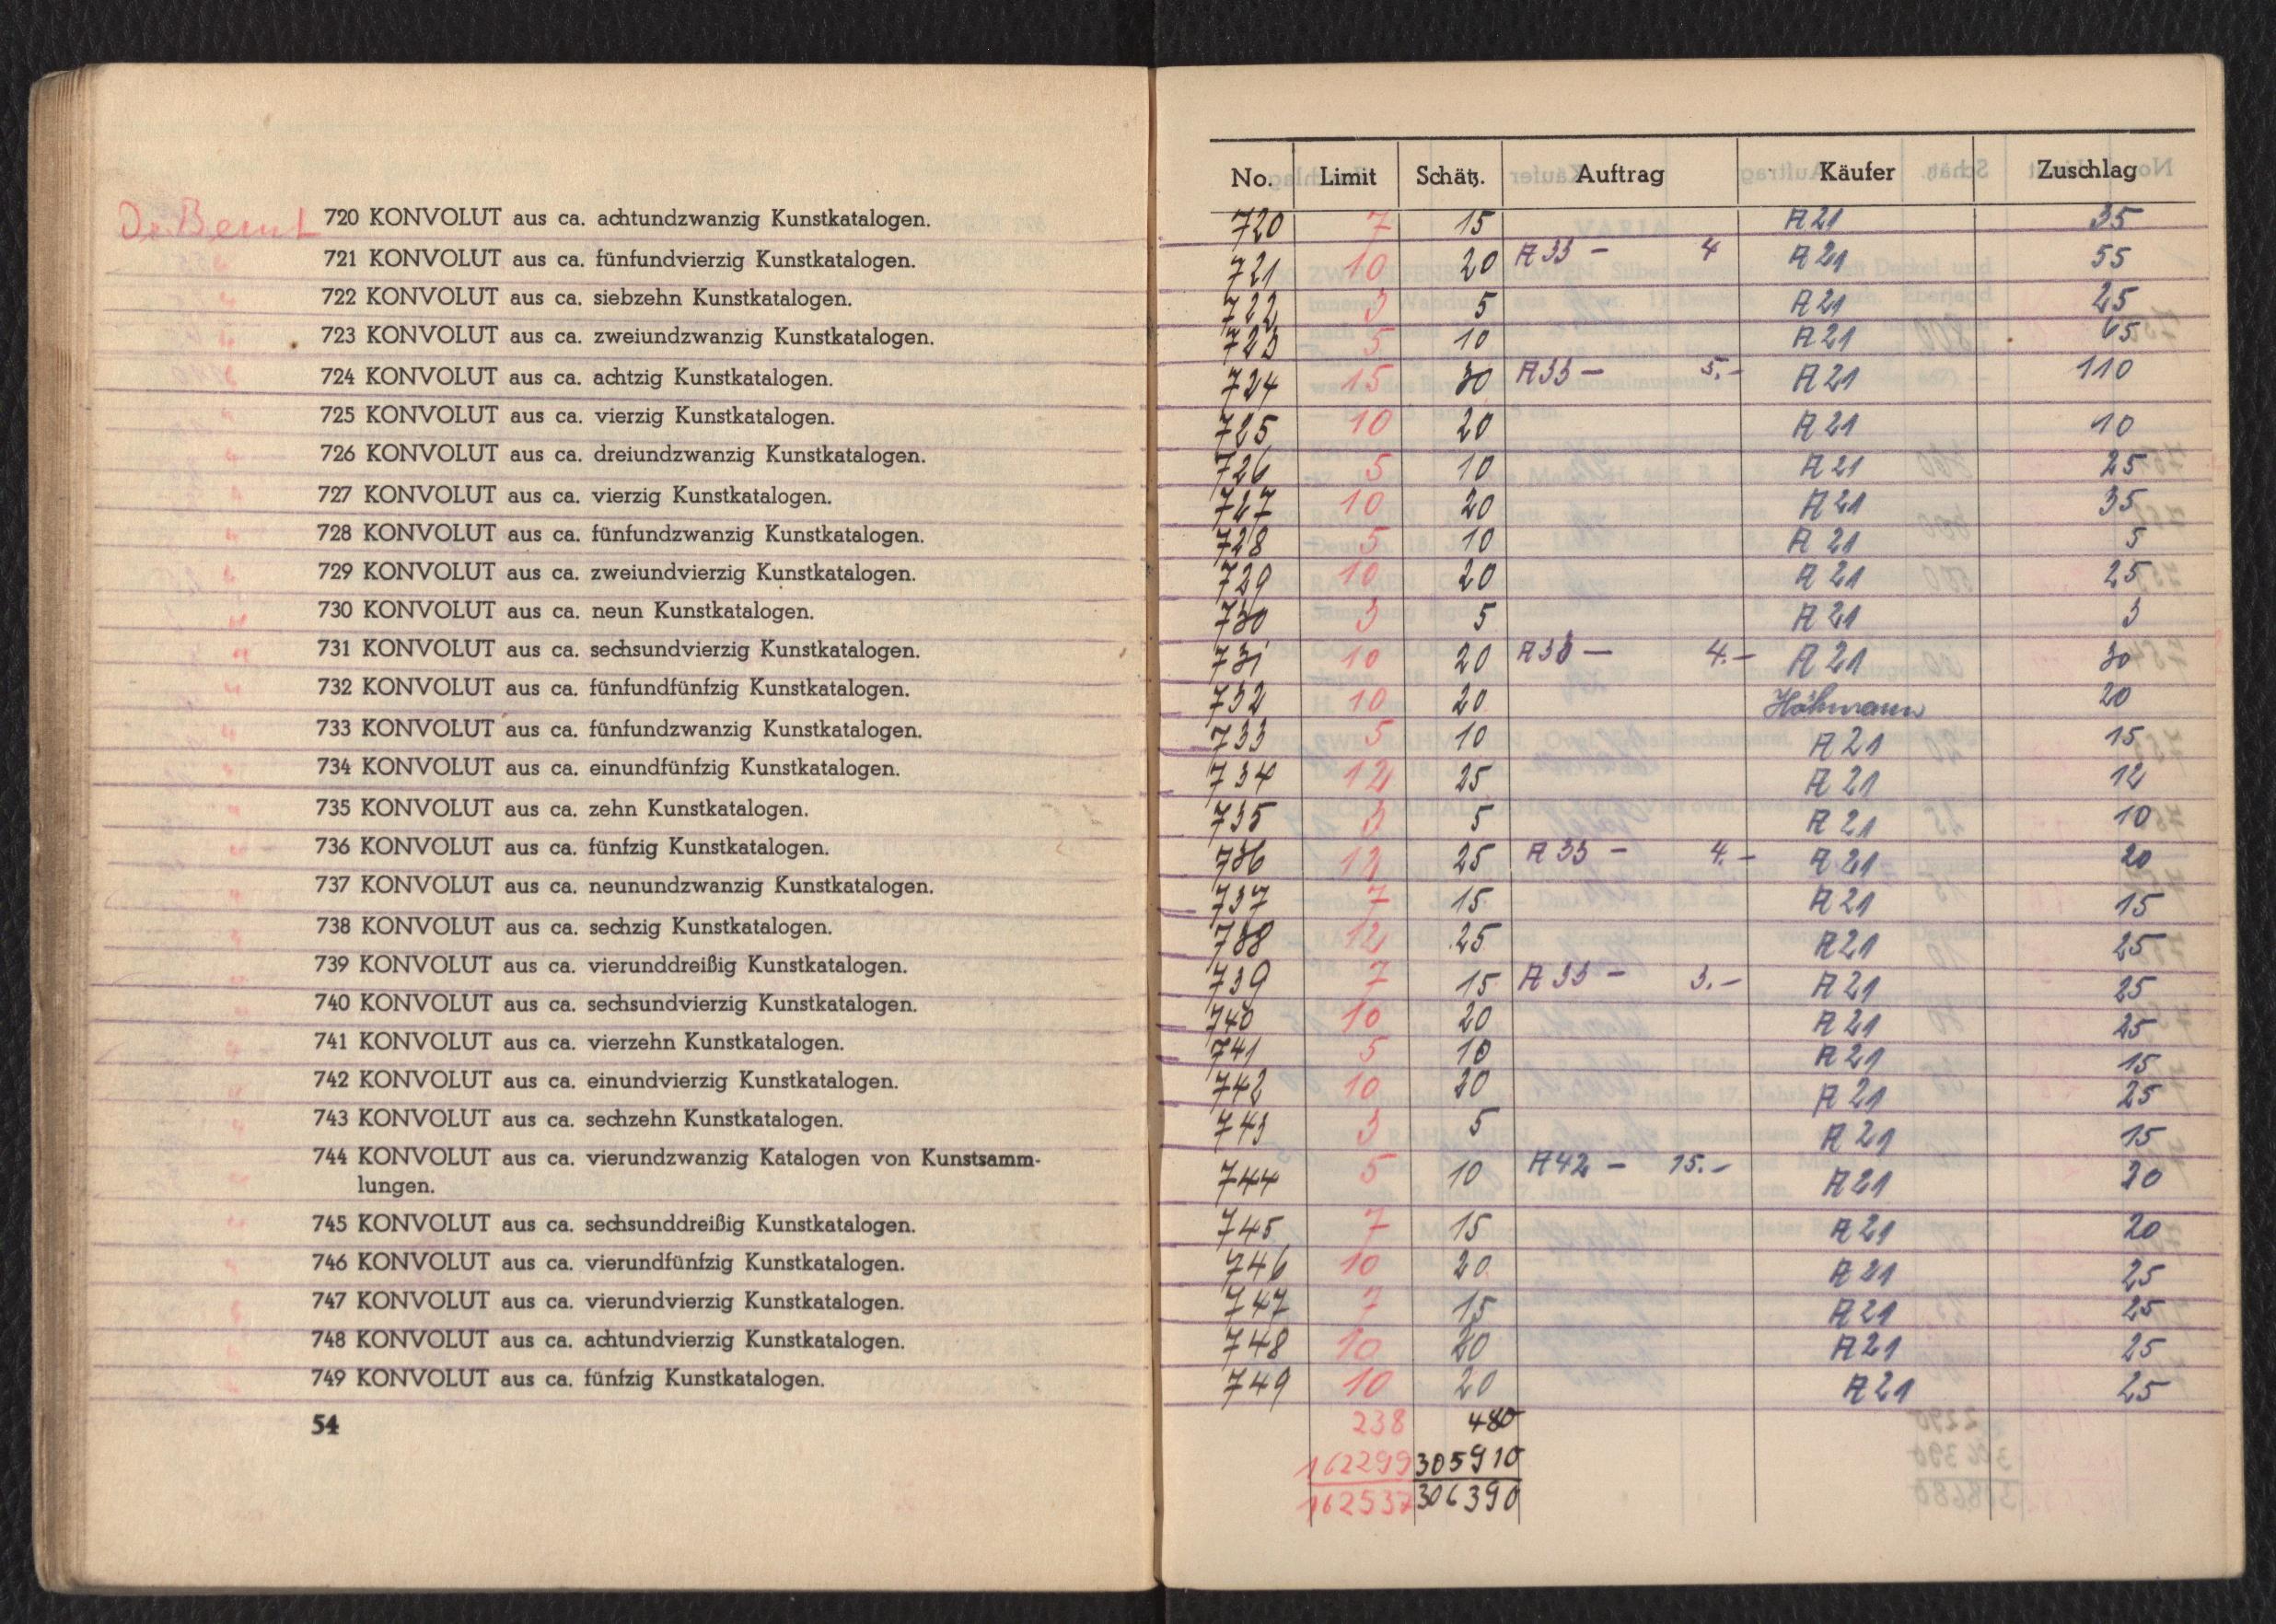 720 KONVOLUT aus ca. achtundzwanzig Kunstkatalogen.
721 KONVOLUT aus ca. fünfundvierzig Kunstkatalogen.
722 KONVOLUT aus ca. siebzehn Kunstkatalogen.
723 KONVOLUT aus ca. zweiundzwanzig Kunstkatalogen.
724 KONVOLUT aus ca. achtzig Kunstkatalogen.
725 KONVOLUT aus ca. vierzig Kunstkatalogen.
726 KONVOLUT aus ca. dreiundzwanzig Kunstkatalogen.
727 KONVOLUT aus ca. vierzig Kunstkatalogen.
728 KONVOLUT aus ca. fünfundzwanzig Kunstkatalogen.
729 KONVOLUT aus ca. zweiundvierzig Kunstkatalogen.
730 KONVOLUT aus ca. neun Kunstkatalogen.
731 KONVOLUT aus ca. sechsundvierzig Kunstkatalogen.
732 KONVOLUT aus ca. fünfundfünfzig Kunstkatalogen.
733 KONVOLUT aus ca. fünfundzwanzig Kunstkatalogen.
734 KONVOLUT aus ca. einundfünfzig Kunstkatalogen.
735 KONVOLUT aus ca. zehn Kunstkatalogen.
736 KONVOLUT aus ca. fünfzig Kunstkatalogen.
737 KONVOLUT aus ca. neunundzwanzig Kunstkatalogen.
738 KONVOLUT aus ca. sechzig Kunstkatalogen.
739 KONVOLUT aus ca. vierunddreißig Kunstkatalogen.
740 KONVOLUT aus ca. sechsundvierzig Kunstkatalogen.
741 KONVOLUT aus ca. vierzehn Kunstkatalogen.
742 KONVOLUT aus ca. einundvierzig Kunstkatalogen.
743 KONVOLUT aus ca. sechzehn Kunstkatalogen.
744 KONVOLUT aus ca. vierundzwanzig Katalogen von Kunstsamm-
lungen.
745 KONVOLUT aus ca. sechsunddreißig Kunstkatalogen.
746 KONVOLUT aus ca. vierundfünfzig Kunstkatalogen.
747 KONVOLUT aus ca. vierundvierzig Kunstkatalogen.
748 KONVOLUT aus ca. achtundvierzig Kunstkatalogen.
749 KONVOLUT aus ca. fünfzig Kunstkatalogen.
54
No. Limit Schätz. Auftrag Käufer Zuschlag
720 7 15 A21 35
721 10 20 A33 – 4 A21 55
722 3 5 A21 25
723 5 10 A21 65
724 15 30 A33 – 5.– A21 110
725 10 20 A21 10
726 5 10 A21 25
727 10 20 A21 35
728 5 10 A21 5
729 10 20 A21 25
730 3 5 A21 3
731 10 20 A33 – 4.– A21 30
732 10 20 20
733 5 10 A21 15
734 12 25 A21 12
735 3 5 A21 10
736 12 25 A33 – 4.– A21 20
737 7 15 A21 15
738 12 25 A21 25
739 7 15 A33 – 3.– A21 25
740 10 20 A21 25
741 5 10 A21 15
742 10 20 A21 25
743 3 5 A21 15
744 5 10 A42 – 15.– A21 20
745 7 15 A21 20
746 10 20 A21 25
747 7 15 A21 25
748 10 20 A21 25
749 10 20 A21 25
238 480
162299 305910
162537 306390